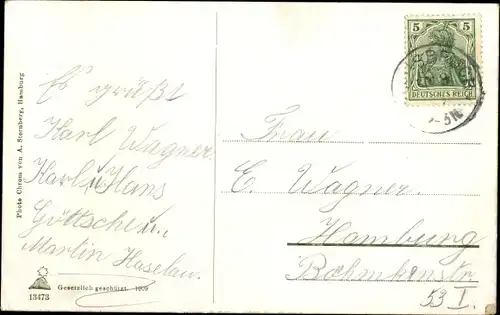 Photo Chrom von A. Sternberg, Hamburg
Es grüßt
Karl Wagner.
Karl u. Hans
Göttsche u.
Martin Haselau.
13473
Gesetzlich geschützt. 1909
5 5
DEUTSCHES REICH
Frau
E. Wagner.
Hamburg
53 I.